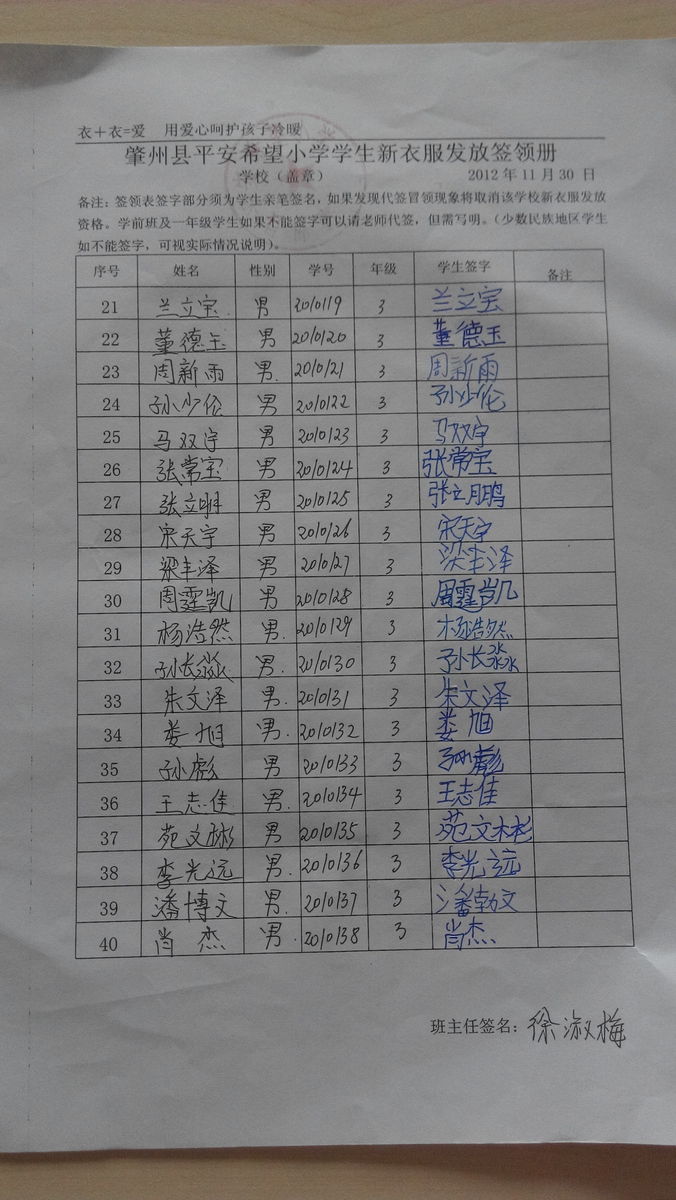 衣＋衣=爱 用爱心呵护孩子冷暖
肇州县平安希望小学学生新衣服发放签领册
学校（盖章） 2012 年 11 月 30 日
备注：签领表签字部分须为学生亲笔签名，如果发现代签冒领现象将取消该学校新衣服发放
资格。学前班及一年级学生如果不能签字可以请老师代签，但需写明。（少数民族地区学生
如不能签字，可视实际情况说明）。
序号 姓名 性别 学号 年级 学生签字 备注
21 兰立宝 男 2010119 3 兰立宝
22 董德玉 男 2010120 3 董德玉
23 周新雨 男 2010121 3 周新雨
24 孙少伦 男 2010122 3 孙少伦
25 马双宇 男 2010123 3 马双宇
26 张常宝 男 2010124 3 张常宝
27 张立明 男 2010125 3 张立鹏
28 宋天宇 男 2010126 3 宋天宇
29 梁丰泽 男 2010127 3 梁丰泽
30 周霆凯 男 2010128 3 周霆凯
31 杨浩然 男 2010129 3 杨浩然
32 孙长淼 男 2010130 3 孙长淼
33 朱文泽 男 2010131 3 朱文泽
34 娄旭 男 2010132 3 娄旭
35 孙彪 男 2010133 3 孙彪
36 王志佳 男 2010134 3 王志佳
37 苑文彬 男 2010135 3 苑文彬
38 李光远 男 2010136 3 李光远
39 潘博文 男 2010137 3 潘勃文
40 肖杰 男 2010138 3 肖杰
班主任签名：徐淑梅